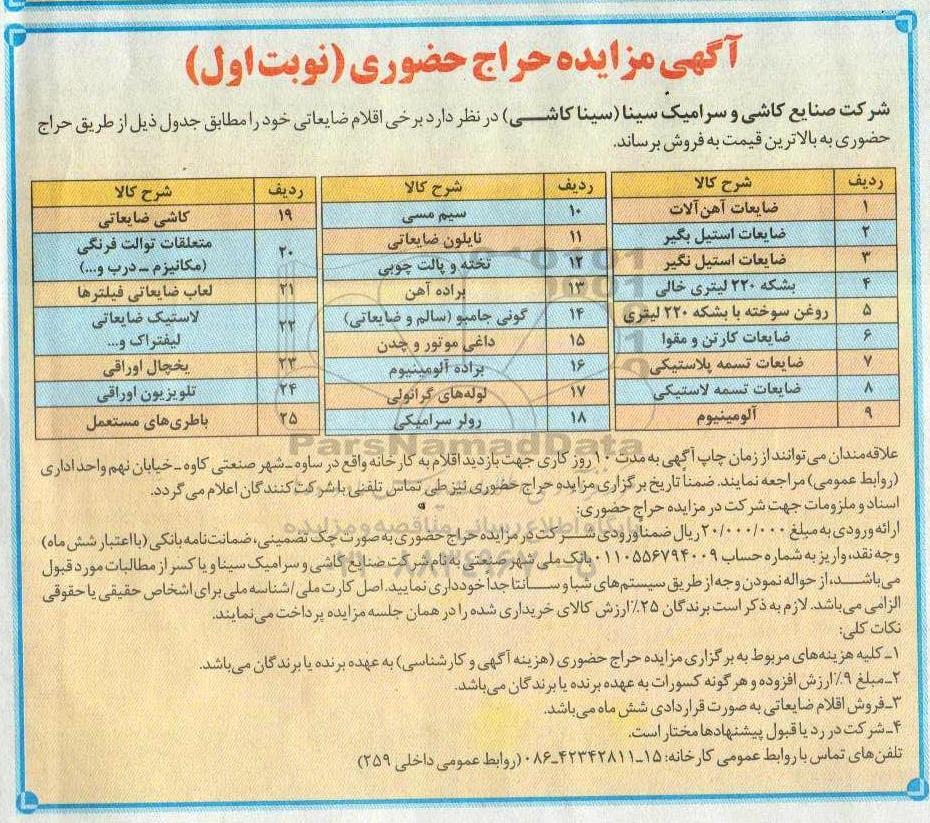 آگهی مزایده حراج حضوری (نوبت اول)
شرکت صنایع کاشی و سرامیک سینا (سینا کاشی) در نظر دارد برخی اقلام ضایعاتی خود را مطابق جدول ذیل از طریق حراج
حضوری به بالاترین قیمت به فروش برساند.
ردیف شرح کالا
۱ ضایعات آهن‌آلات
۲ ضایعات استیل بگیر
۳ ضایعات استیل نگیر
۴ بشکه ۲۲۰ لیتری خالی
۵ روغن سوخته با بشکه ۲۲۰ لیتری
۶ ضایعات کارتن و مقوا
۷ ضایعات تسمه پلاستیکی
۸ ضایعات تسمه لاستیکی
۹ آلومینیوم
ردیف شرح کالا
۱۰ سیم مسی
۱۱ نایلون ضایعاتی
۱۲ تخته و پالت چوبی
۱۳ براده آهن
۱۴ گونی جامبو (سالم و ضایعاتی)
۱۵ داغی موتور و چدن
۱۶ براده آلومینیوم
۱۷ لوله‌های گرانولی
۱۸ رولر سرامیکی
ردیف شرح کالا
۱۹ کاشی ضایعاتی
۲۰ متعلقات توالت فرنگی
(مکانیزم ـ درب و...)
۲۱ لعاب ضایعاتی فیلترها
۲۲ لاستیک ضایعاتی
لیفتراک و...
۲۳ یخچال اوراقی
۲۴ تلویزیون اوراقی
۲۵ باطری‌های مستعمل
ParsNamadData
علاقه‌مندان می‌توانند از زمان چاپ آگهی به مدت ۱۰ روز کاری جهت بازدید اقلام به کارخانه واقع در ساوه ـ شهر صنعتی کاوه ـ خیابان نهم واحد اداری
(روابط عمومی) مراجعه نمایند. ضمنا تاریخ برگزاری مزایده حراج حضوری نیز طی تماس تلفنی با شرکت‌کنندگان اعلام می‌گردد.
اسناد و ملزومات جهت شرکت در مزایده حراج حضوری:
پایگاه اطلاع رسانی مناقصه و مزایده
ارائه ورودی به مبلغ ۲۰/۰۰۰/۰۰۰ ریال ضمنا ورودی شرکت در مزایده حراج حضوری به صورت چک تضمینی، ضمانت‌نامه بانکی (با اعتبار شش ماه)
وجه نقد، واریز به شماره حساب ۰۱۱۰۵۵۶۷۹۴۰۰۹ بانک ملی شهر صنعتی به نام شرکت صنایع کاشی و سرامیک سینا و یا کسر از مطالبات مورد قبول
می‌باشد، از حواله نمودن وجه از طریق سیستم‌های شبا و سانتا جدا خودداری نمایید. اصل کارت ملی / شناسه ملی برای اشخاص حقیقی یا حقوقی
الزامی می‌باشد. لازم به ذکر است برندگان ۲۵٪ ارزش کالای خریداری شده را در همان جلسه مزایده پرداخت می‌نمایند.
نکات کلی:
۱ـ کلیه هزینه‌های مربوط به برگزاری مزایده حراج حضوری (هزینه آگهی و کارشناسی) به عهده برنده یا برندگان می‌باشد.
۲ـ مبلغ ۹٪ ارزش افزوده و هرگونه کسورات به عهده برنده یا برندگان می‌باشد.
۳ـ فروش اقلام ضایعاتی به صورت قراردادی شش ماه می‌باشد.
۴ـ شرکت در رد یا قبول پیشنهادها مختار است.
تلفن‌های تماس با روابط عمومی کارخانه: ۱۵ـ۴۲۳۴۲۸۱۱ـ۰۸۶ (روابط عمومی داخلی ۲۵۹)